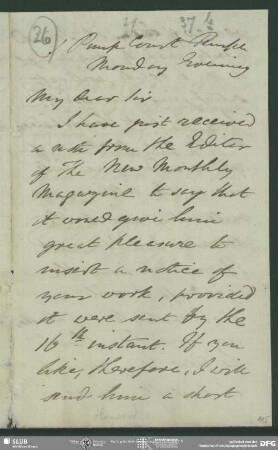 26
37
Pump Court Temple
Monday Evening
My dear Sir
I have just received
a note from the Editor
of The New Monthly
Magazine to say that
it would give him
great pleasure to
insert a notice of
your work, provided
it were sent by the
16th instant. If you
like, therefore, I will
send him a short
SLUB
DFG